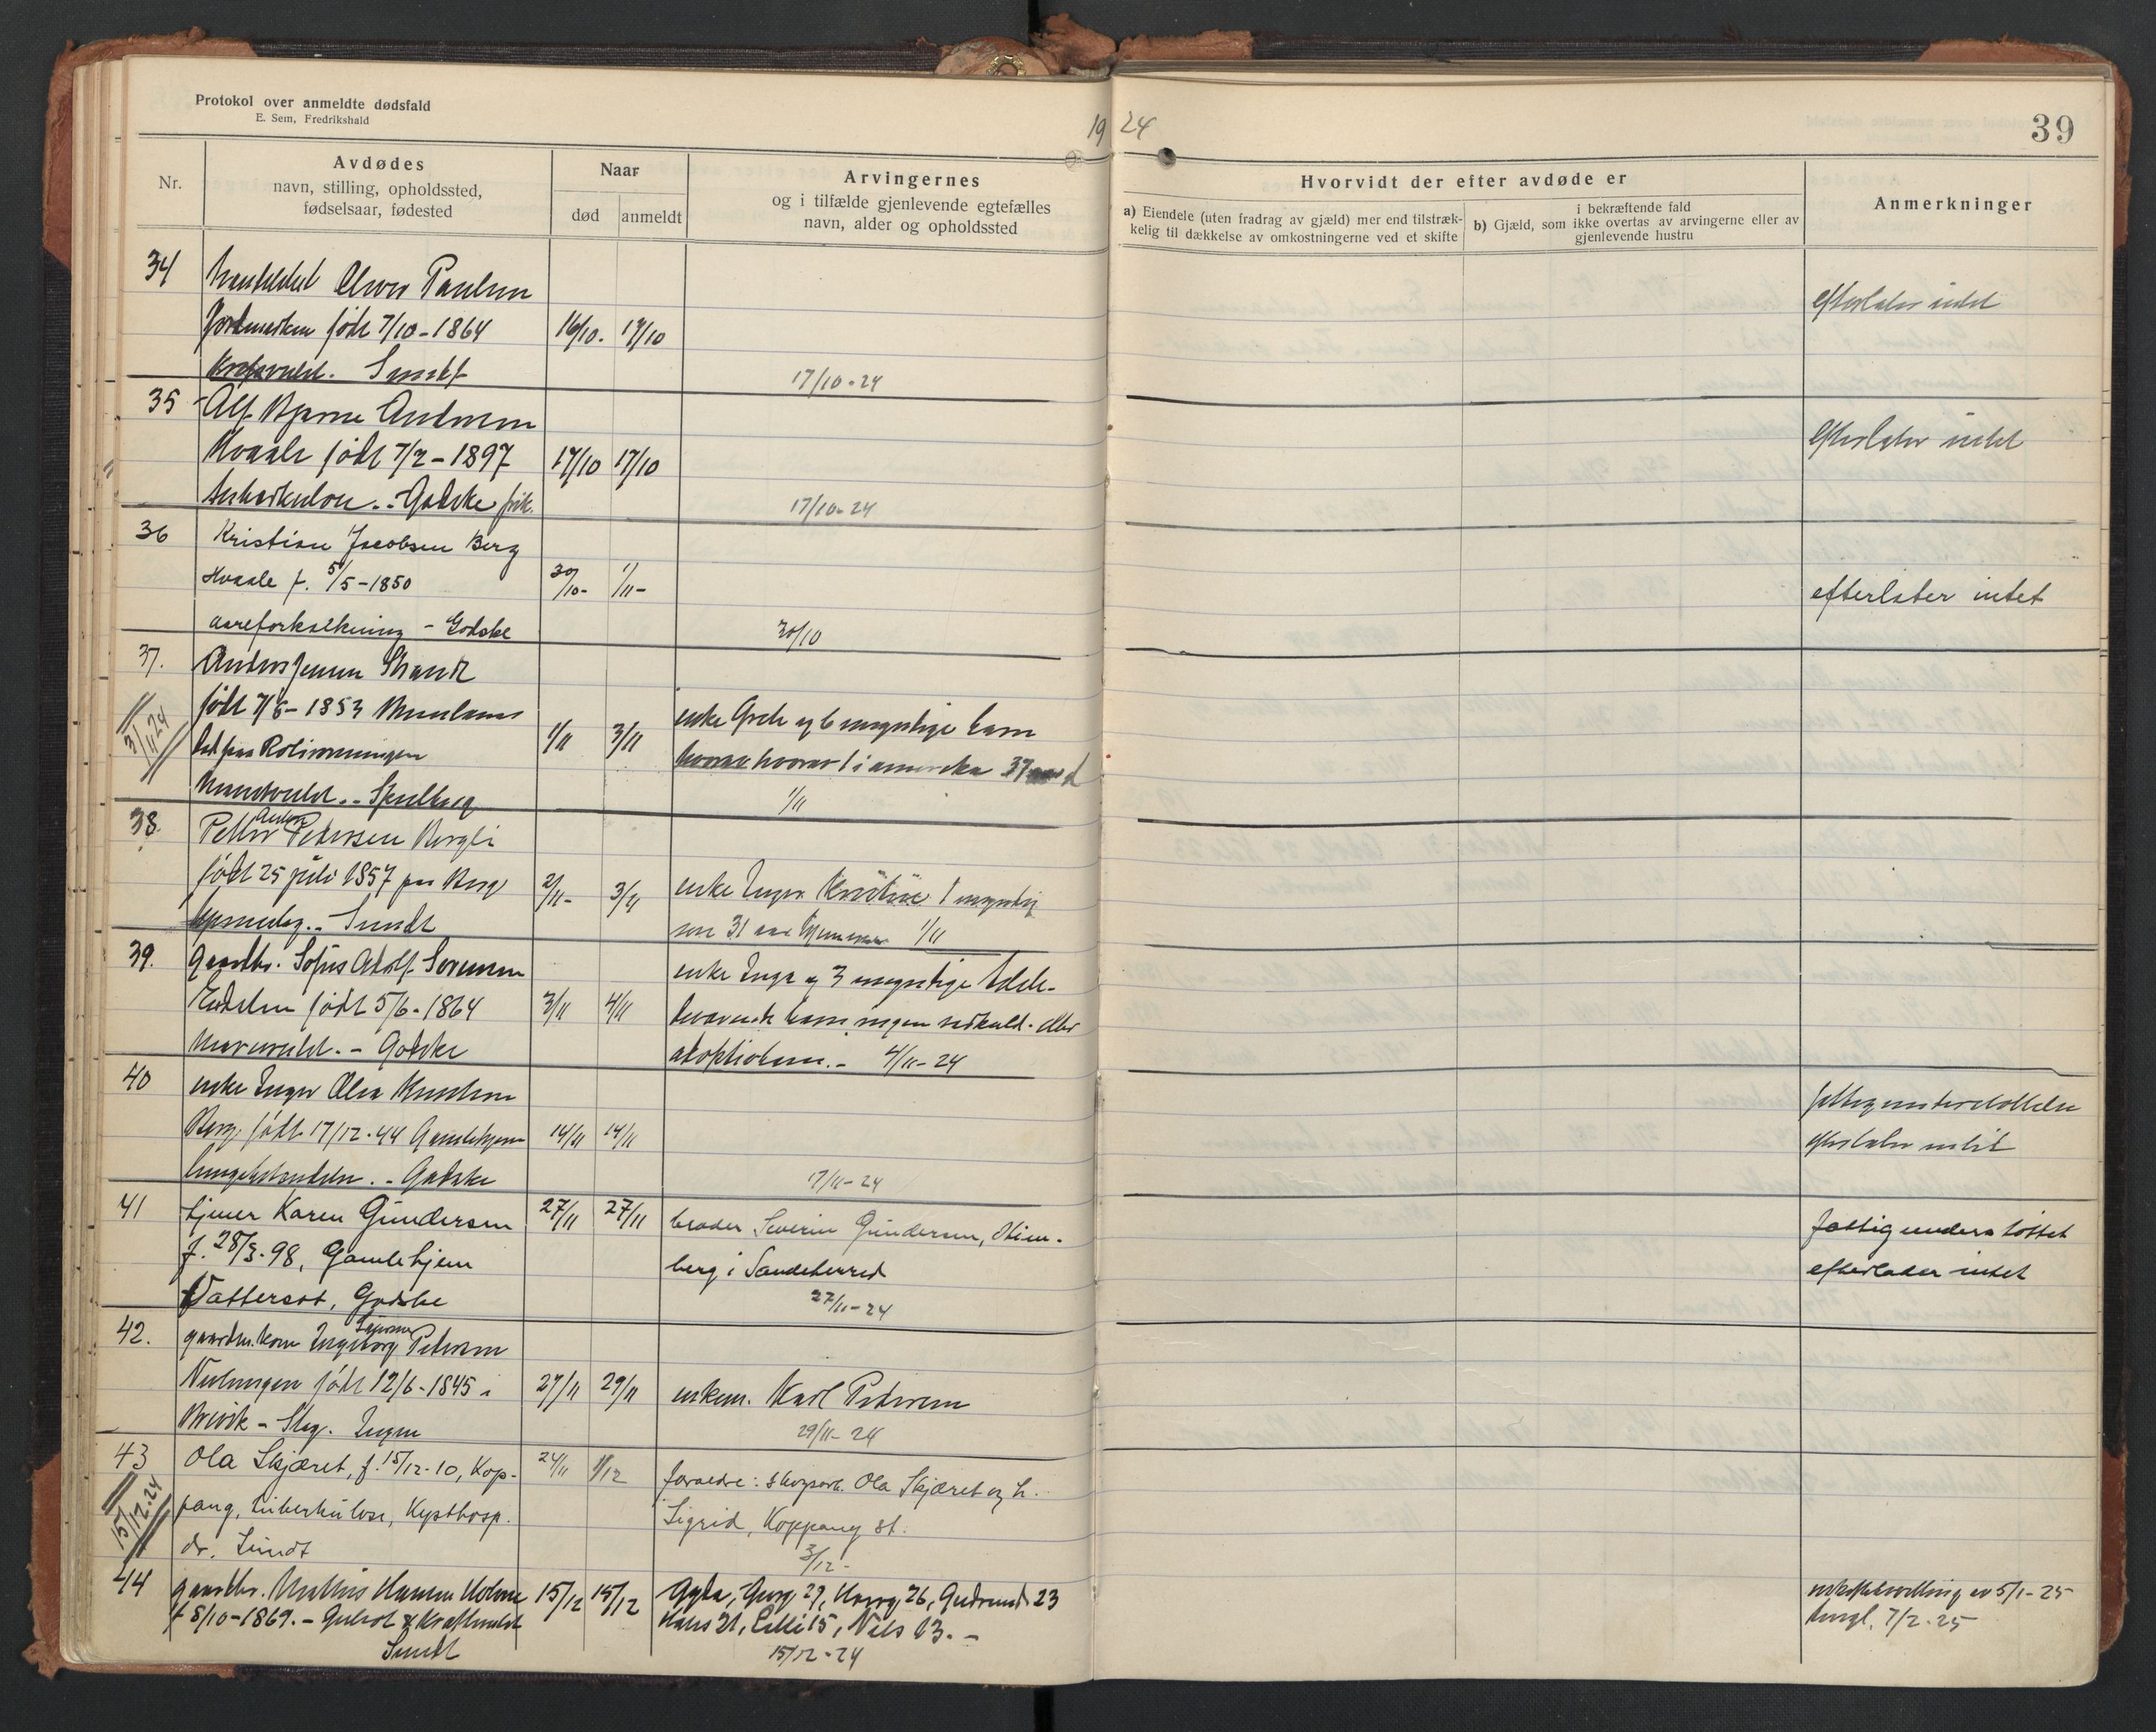 Protokol over anmeldte dødsfald
E. Sem, Fredrikshald
19 24
39
Nr.
Avdødes
navn, stilling, opholdssted,
fødselsaar, fødested
Naar
død
anmeldt
Arvingernes
og i tilfælde gjenlevende egtefælles
navn, alder og opholdssted
Hvorvidt der efter avdøde er
a) Eiendele (uten fradrag av gjæld) mer end tilstræk-
kelig til dækkelse av omkostningerne ved et skifte
i bekræftende fald
b) Gjæld, som ikke overtas av arvingerne eller av
gjenlevende hustru
Anmerkninger
34
Paulsen
født 7/10-1864
16/10. 17/10
Sundt
17/10-24
efterlater intet
35
Alf Bjarne Andersen
Hvaale født 7/2-1897
17/10 17/10
tuberkulose.- Godske
17/10-24
efterlater intet
36
Kristian Jacobsen Berg
Hvaale f. 5/5-1850
30/10- 1/11-
aareforkalkning - Godske
30/10
efterlater intet
37.
3/11 24
Anders Jensen Strand
født 7/6-1853
1/11 3/11
enke Grete og 6 myndige barn
hvorav 1 i amerika 37
1/11
38.
Petter Anton Pedersen Bergli
født 25 juli 1857 paa Berg
2/11- 3/11
Sundt
enke Inger Kristine 1 myndig
søn 31 aar 1/11
39.
gaardbr. Sofus Adolf Sørensen
født 5/6-1864
3/11 4/11
- Godske
enke Inga og 3 myndige fælles-
barn ingen særkuld- eller
adoptivbarn.- 4/11-24
40
enke Inger Olea Knudsen
Berg, født 17/12-44 Gamlehjem
14/11 14/11
lungebetændelse.- Godske
17/11-24
fattigunderstøttelse
efterlater intet
41
tjener Karen Gundersen
27/11 27/11
f. 28/3-98, Gamlehjem
Vattersot, Godske
broder Severin Gundersen, Stien-
berg i Sandeherred
27/11-24
fattigunderstøttet
efterlader intet
42.
gaardm.kone Ingeborg Petersen
født 12/6-1845 i
27/11 29/11
Brevik - Slag. Ingen
enkem. Karl Petersen
29/11-24
43
15/12-24
Ola Skjæret, f. 15/12-10, Kop-
24/11 1/12
pang, tuberkulose, Kysthosp.
dr. Sundt
foraeldre: skogsarb. Ola Skjæret og h.
Sigrid, Koppang st.
3/12-
44
gaardbr. Mathis Hansen Holme
15/12 15/12
f 8/10-1869.-
Sundt
Gyda, Georg 29, Harry 26, Gudrund 23
Hans 21, Lilli 15, Nils 13.-
15/12-24
uskiftebevilling av 5/1-25
tingl. 7/2-25